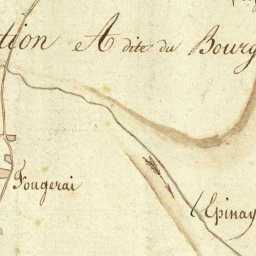 tion A dite du Bourg
Fougerai
l'Epinay